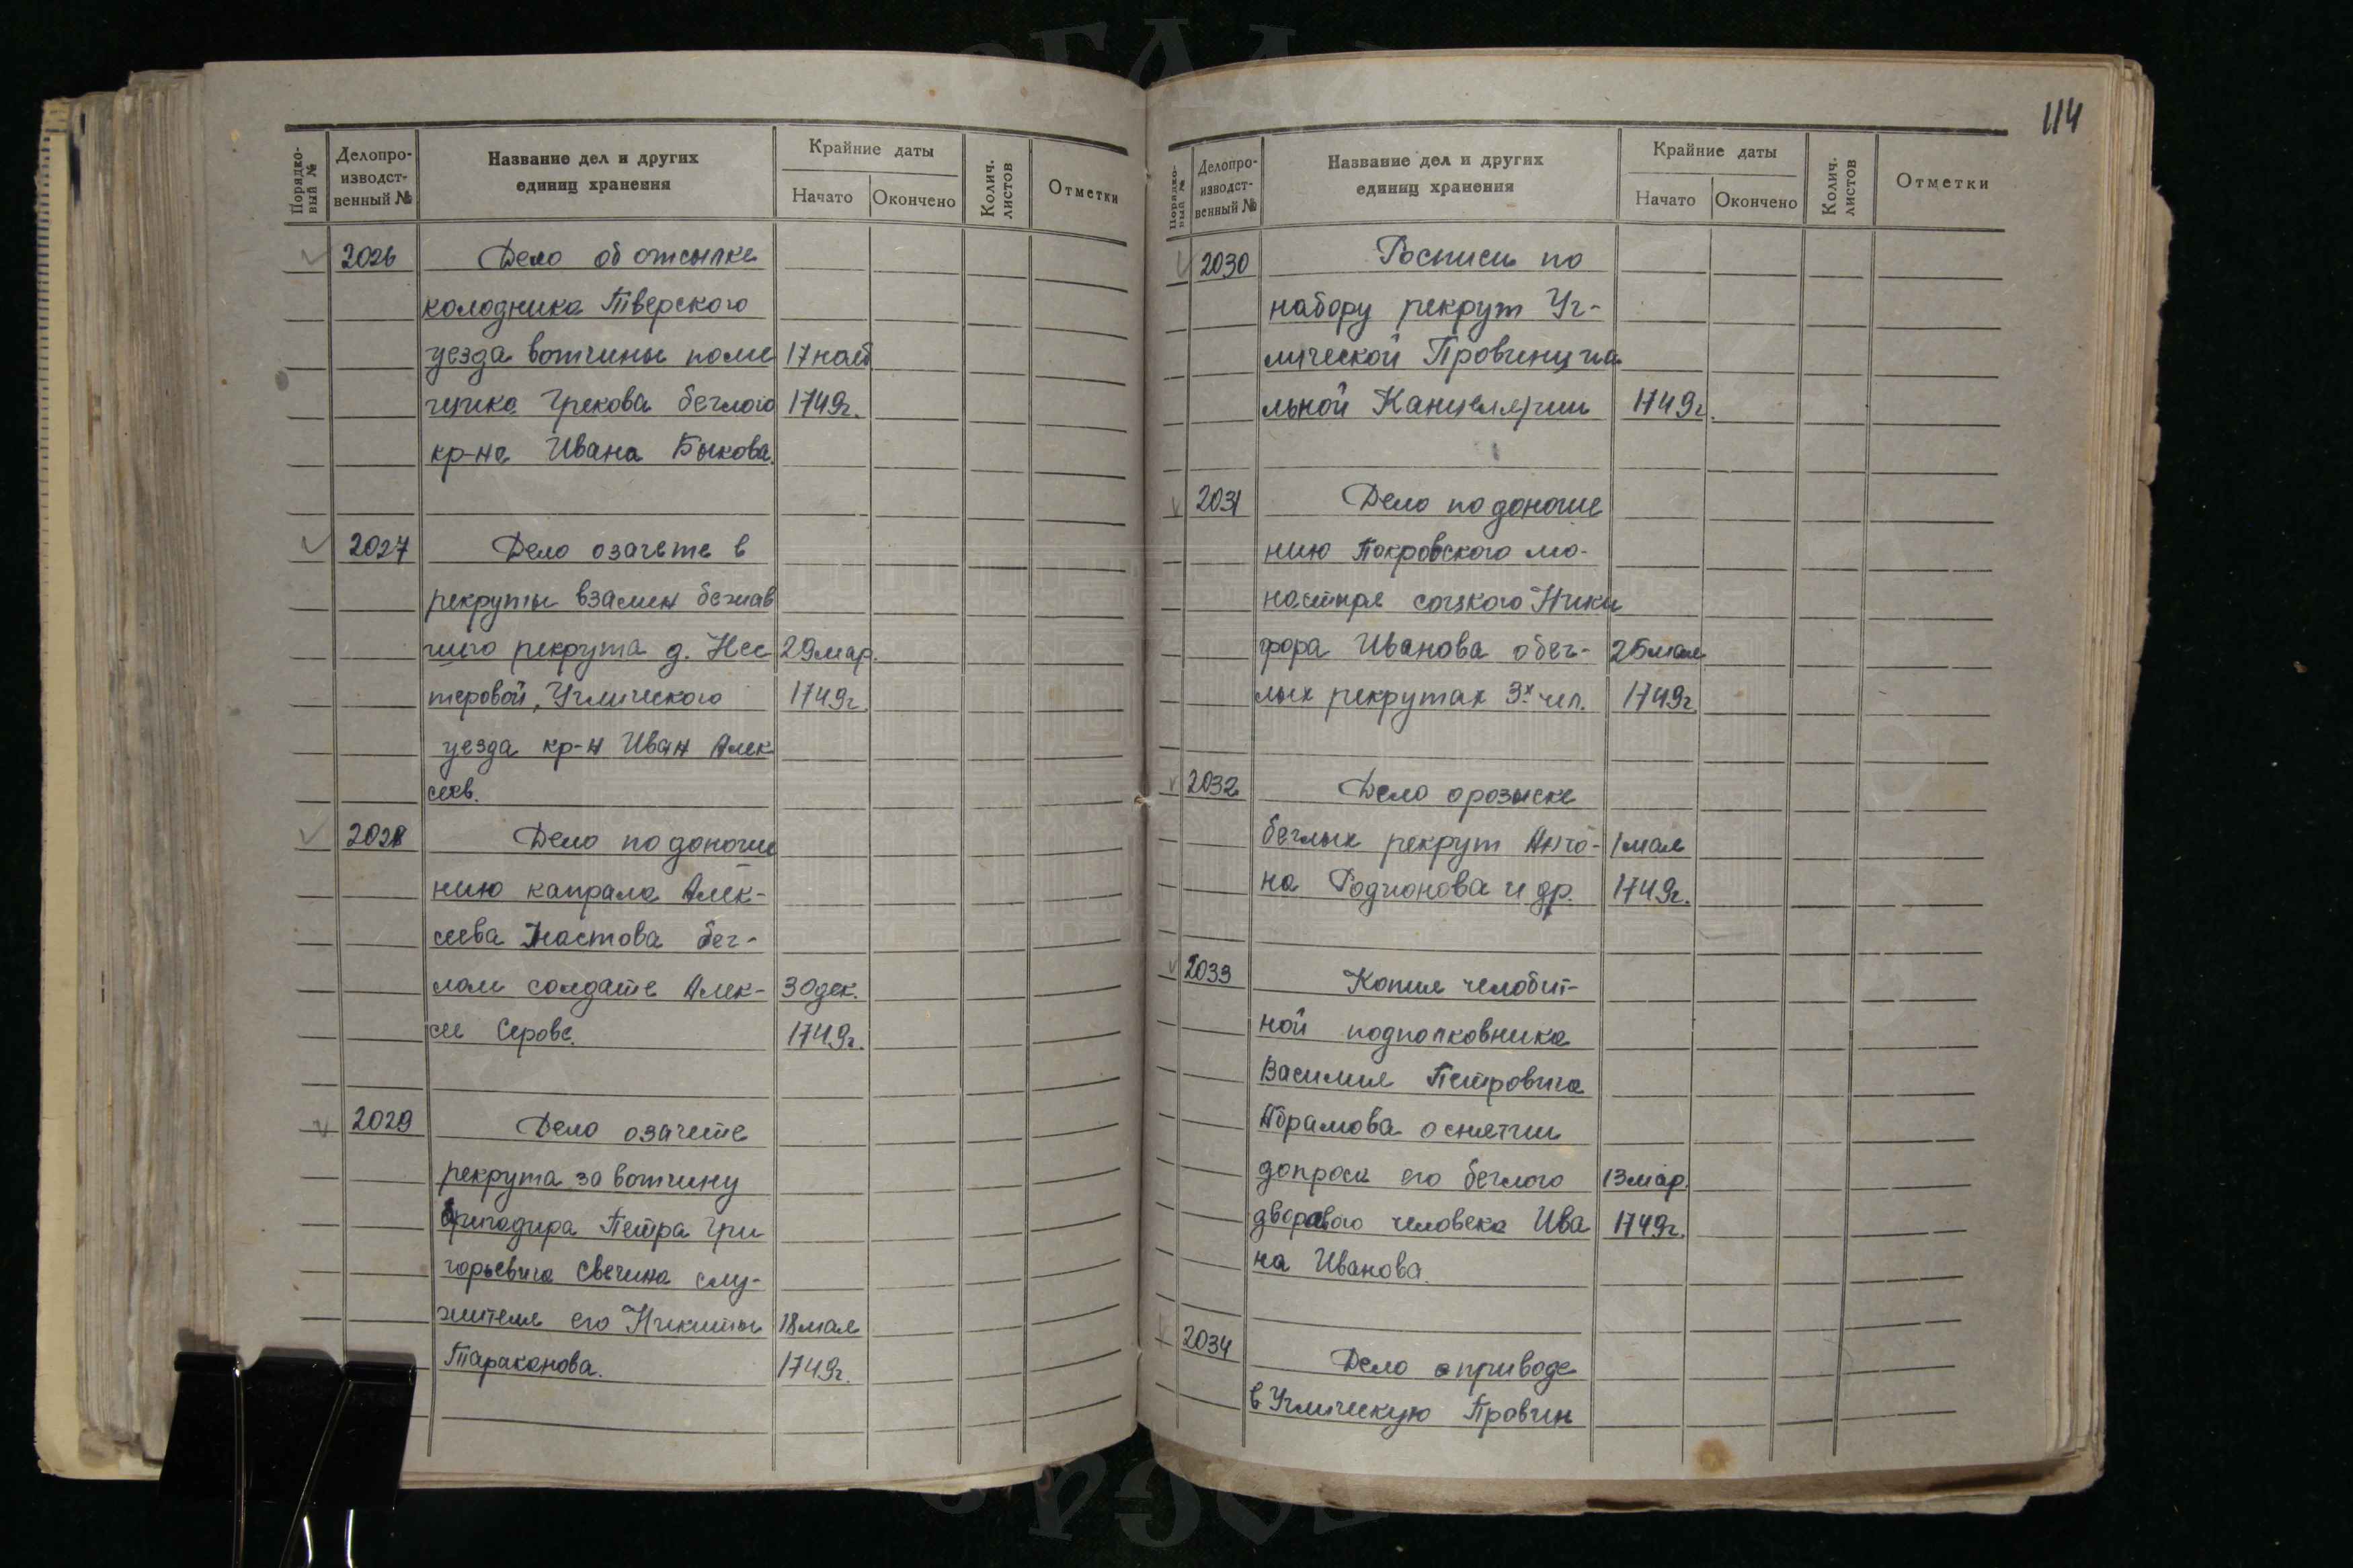 114
Порядко-
вый №
Делопро-
изводст-
венный №
Название дел и других
единиц хранения
Крайние даты
Начато
Окончено
Колич.
листов
Отметки
2026 Дело об отсылке
колодника Тверского
уезда вотчины поме
щика Грекова беглого
кр-на Ивана Быкова.
17 нояб
1749г.
2027 Дело о зачете в
рекруты взамен бежав
шего рекрута д. Нес
теровой, Угличского
уезда кр-н Иван Алек
сеев.
29 мар.
1749г.
2028 Дело по доноше
нию капрала Алек-
сеева о бег-
лом солдате Алек-
сее Серове.
30 дек.
1749г.
2029 Дело о зачете
рекрута за вотчину
бригадира Петра Гри
горьевича Свечина слу-
жителя его Никиты
Тараканова.
18 мая
1749г.
Порядко-
вый №
Делопро-
изводст-
венный №
Название дел и других
единиц хранения
Крайние даты
Начато
Окончено
Колич.
листов
Отметки
2030 Росписи по
набору рекрут Уг-
лической Провинциа
льной Канцелярии
1749г.
2031 Дело по доноше
нию Покровского мо-
настыря соцкого Ники
фора Иванова о бег-
лых рекрутах 3х чел.
25 мая
1749г.
2032 Дело о розыске
беглых рекрут Анто-
на Родионова и др.
1 мая
1749г.
2033 Копия челобит-
ной подполковника
Василия Петровича
Абрамова о снятии
допроса его беглого
дворового человека Ива
на Иванова.
13 мар.
1749г.
2034 Дело о приводе
в Угличскую Провин